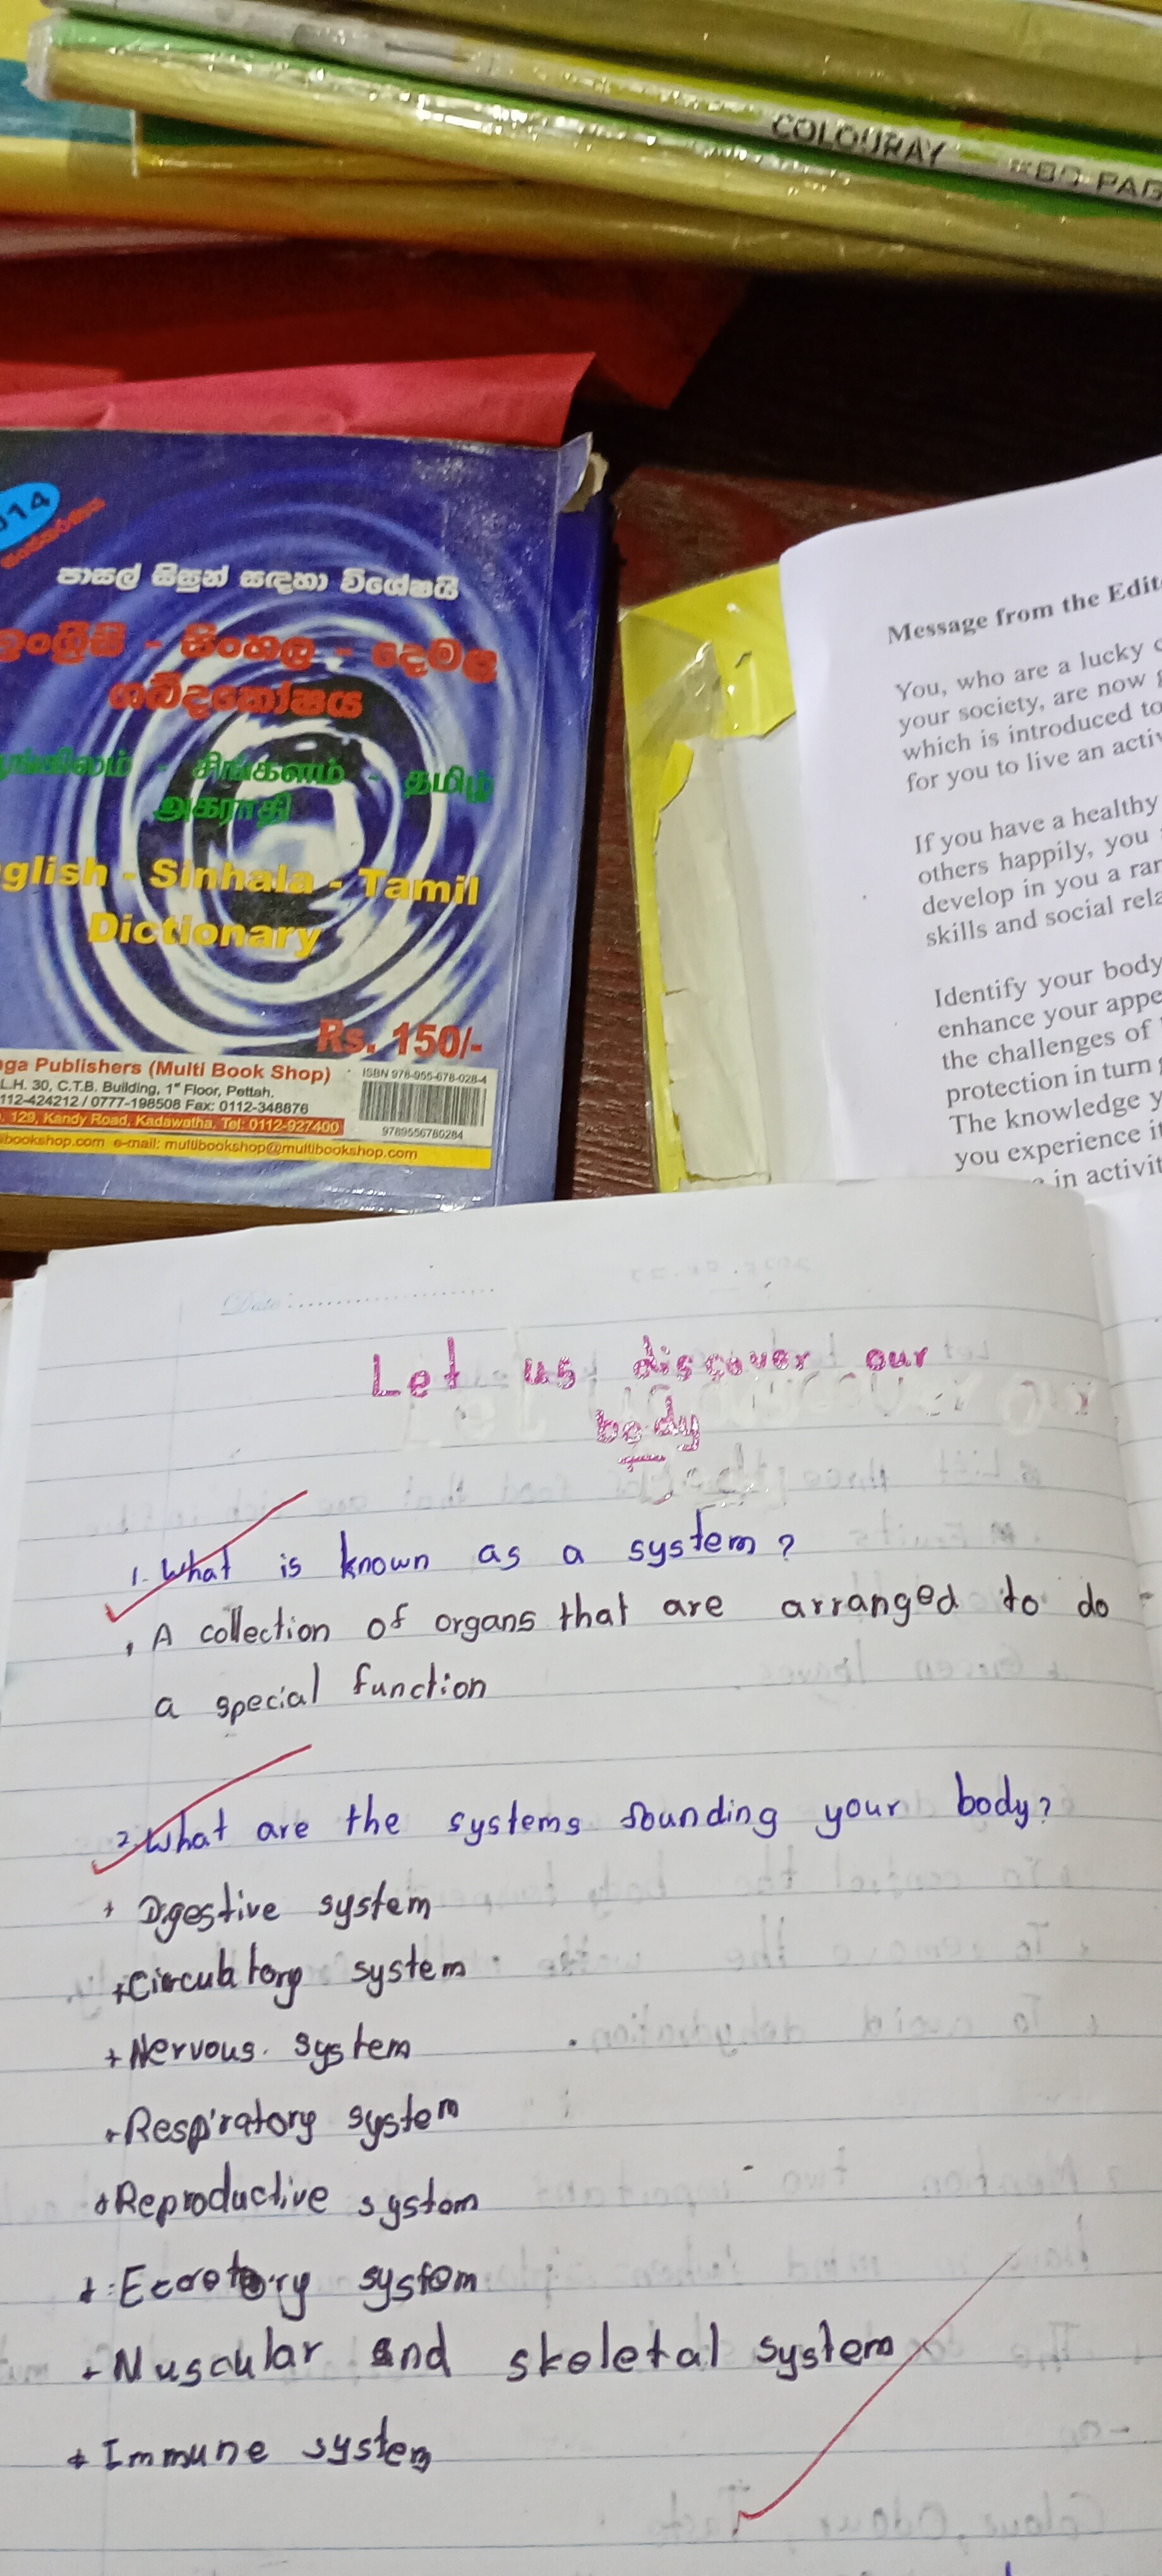 COLOURAY
PAG
014
පාසල් සිසුන් සඳහා විශේෂයි
ඉංග්‍රීසි - සිංහල - දෙමළ
ශබ්දකෝෂය
ஆங்கிலம் - சிங்களம் - தமிழ்
அகராதி
glish - Sinhala - Tamil
Dictionary
Rs. 150/-
ga Publishers (Multi Book Shop)
L.H. 30, C.T.B. Building, 1st Floor, Pettah.
112-424212 / 0777-198508 Fax: 0112-348876
129, Kandy Road, Kadawatha. Tel: 0112-927400
ibookshop.com e-mail: multibookshop@multibookshop.com
ISBN 978-955-678-028-4
9789556780284
Message from the Edit
You, who are a lucky c
your society, are now g
which is introduced to
for you to live an activ
If you have a healthy
others happily, you
develop in you a ran
skills and social rela
Identify your body
enhance your appe
the challenges of
protection in turn
The knowledge y
you experience it
in activit
Date:
Let us discover our
body
1. What is known as a system?
A collection of organs that are arranged to do
a special function
2. What are the systems founding your body?
+ Digestive system
+ Circulatory system
+ Nervous. system
+ Respiratory system
+ Reproductive system
+ Ecrotory system
+ Muscular and skeletal system
+ Immune system